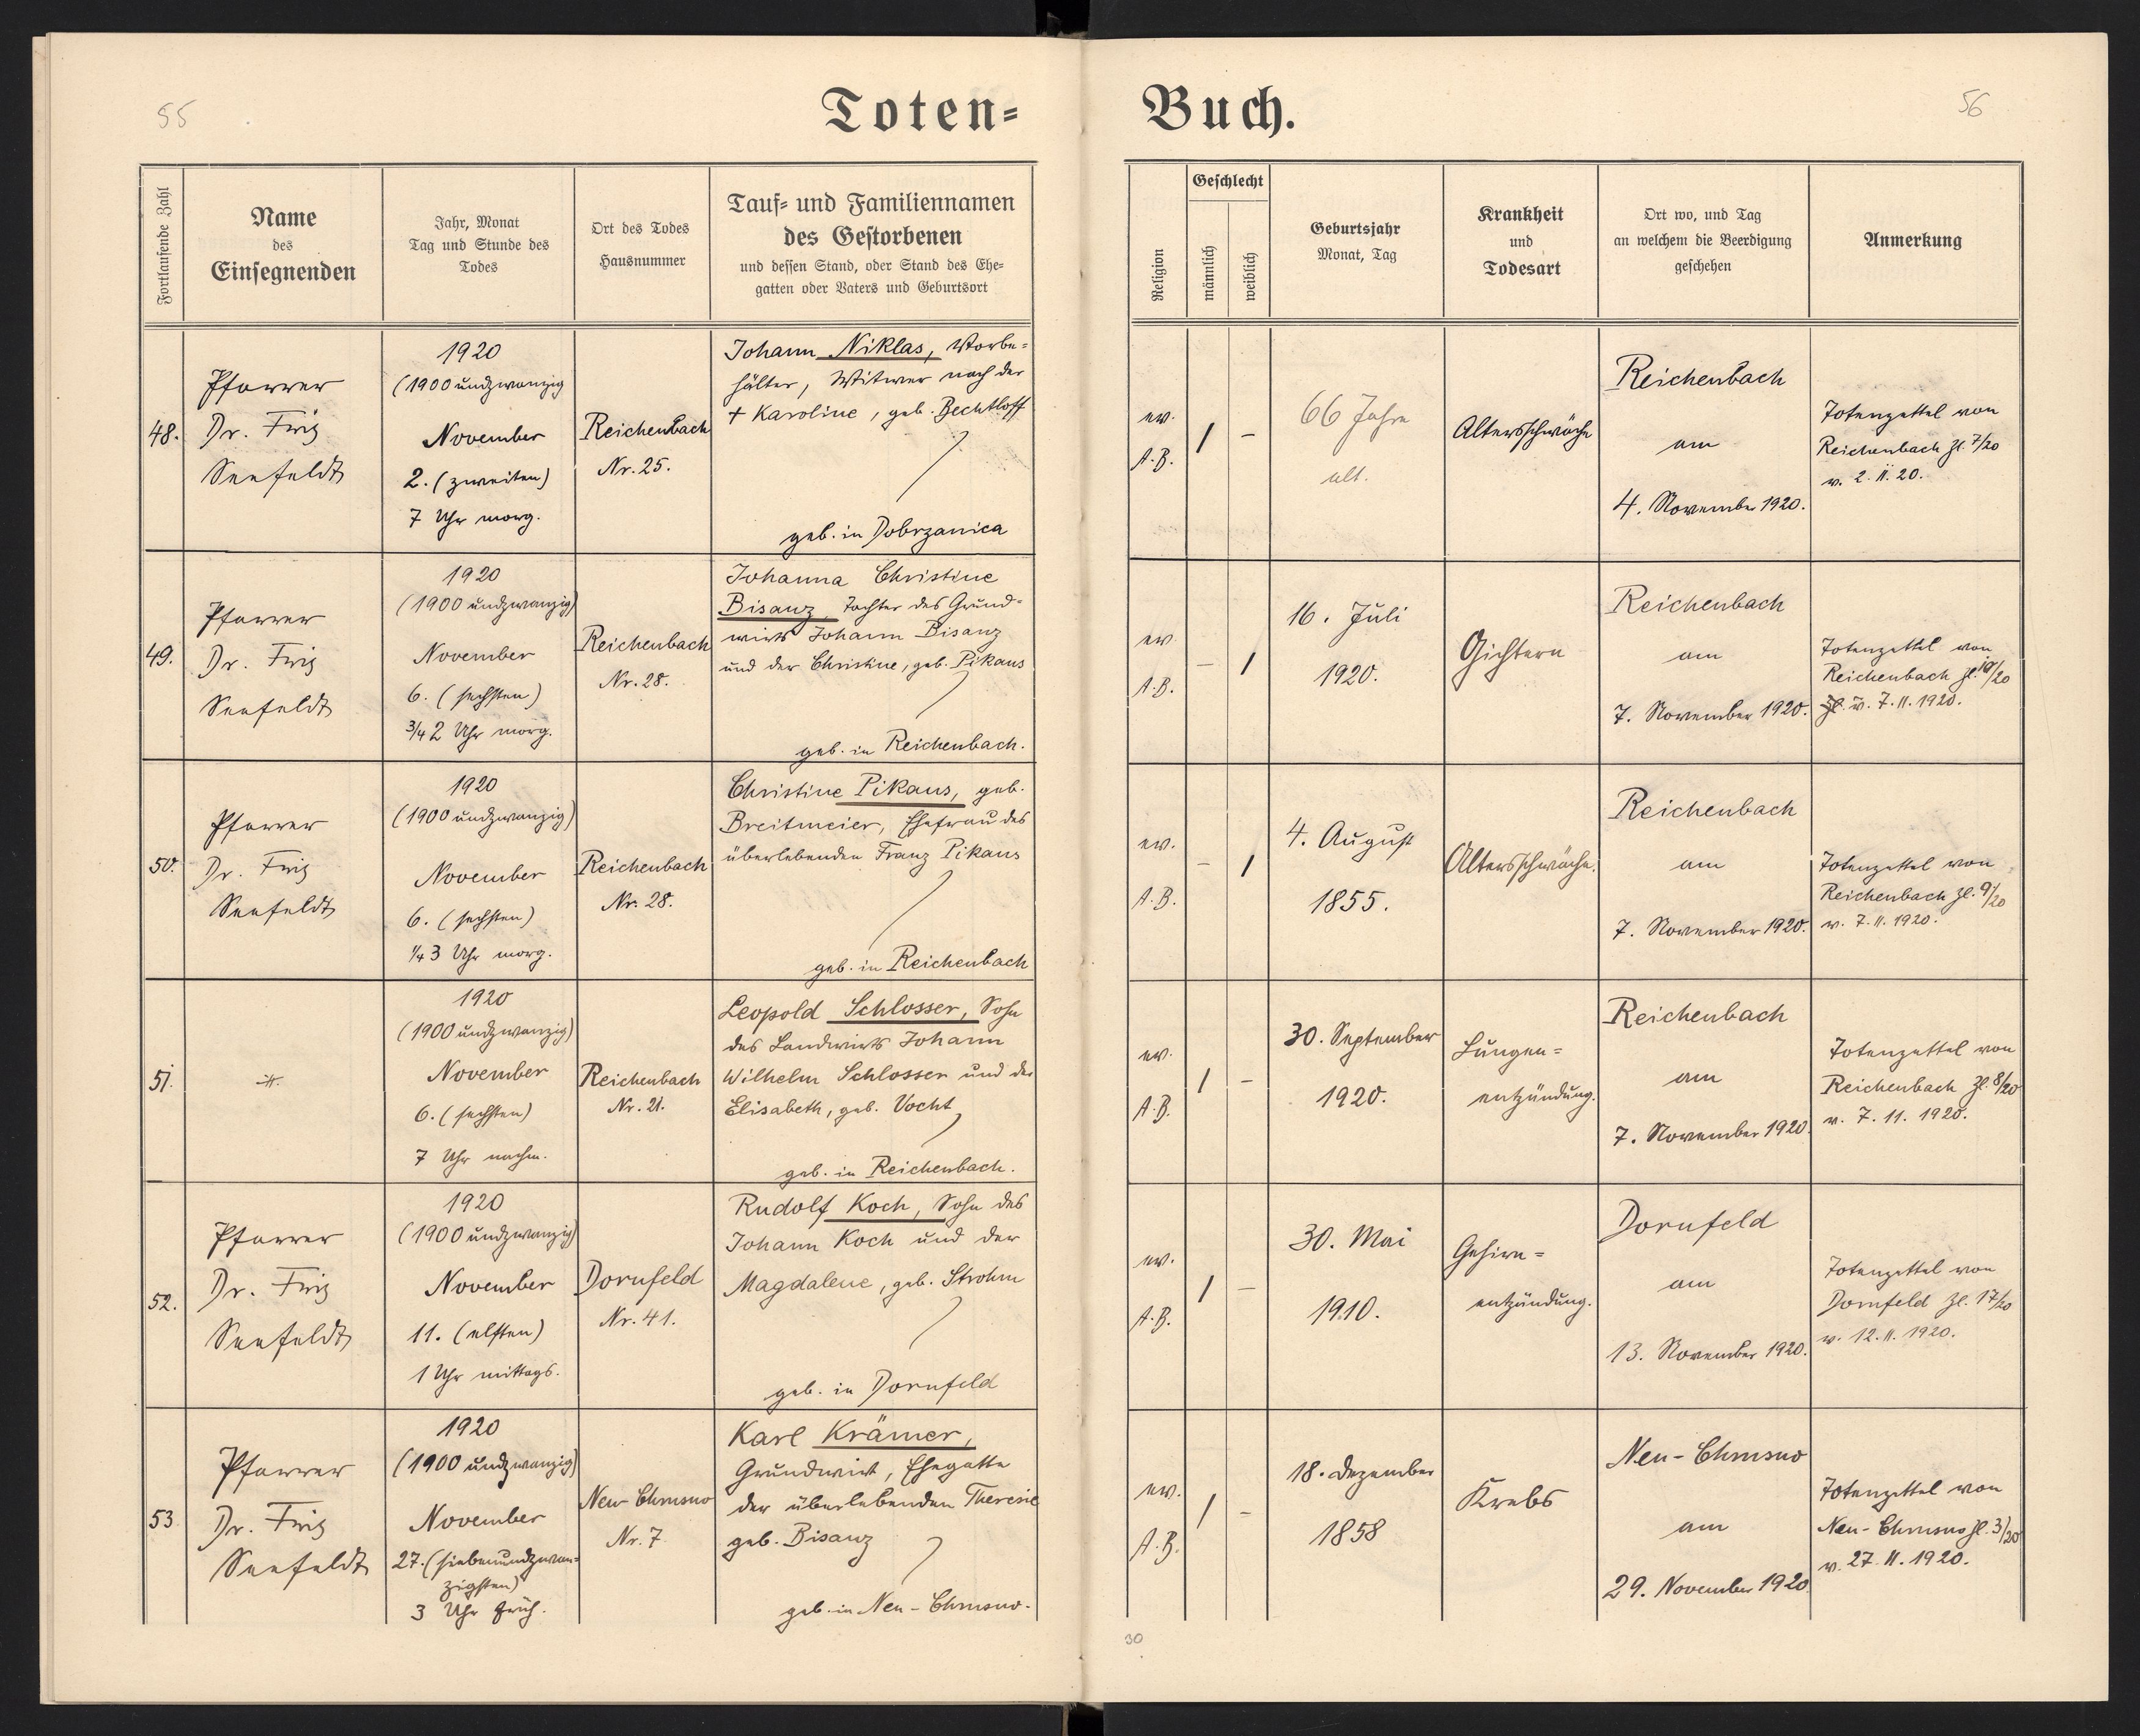 55
Toten=
Buch.
56
Fortlaufende Zahl
Name
des
Einsegnenden
Jahr, Monat
Tag und Stunde des
Todes
Ort des Todes
Hausnummer
Tauf= und Familiennamen
des Gestorbenen
und dessen Stand, oder Stand des Ehe=
gatten oder Vaters und Geburtsort
Religion
Geschlecht
männlich
weiblich
Geburtsjahr
Monat, Tag
Krankheit
und
Todesart
Ort wo, und Tag
an welchem die Beerdigung
geschehen
Anmerkung
48.
Pfarrer
Dr. Fritz
Seefeldt
1920
(1900 undzwanzig
November
2. (zweiten)
7 Uhr morg.
Reichenbach
Nr. 25.
Johann Niklas, Vorbe=
hälter, Witwer nach der
+ Karoline, geb. Bechtloff
geb. in Dobrzanica
ev.
A.B.
1
–
66 Jahre
alt.
Altersschwäche
Reichenbach
am
4. November 1920.
Totenzettel von
Reichenbach Zl. 7/20
v. 2. 11. 20.
49.
Pfarrer
Dr. Fritz
Seefeldt
1920
(1900 undzwanzig)
November
6. (sechsten)
3/4 2 Uhr morg.
Reichenbach
Nr. 28.
Johanna Christine
Bisanz, Tochter des Grund=
wirts Johann Bisanz
und der Christine, geb. Pikaus
geb. in Reichenbach.
ev.
A.B.
–
1
16. Juli
1920.
Gichtern
Reichenbach
am
7. November 1920.
Totenzettel von
Reichenbach Zl. 10/20
v. 7. 11. 1920.
50.
Pfarrer
Dr. Fritz
Seefeldt
1920
(1900 undzwanzig)
November
6. (sechsten)
1/4 3 Uhr morg.
Reichenbach
Nr. 28.
Christine Pikaus, geb.
Breitmeier, Ehefrau des
überlebenden Franz Pikaus
geb. in Reichenbach
ev.
A.B.
–
1
4. August
1855.
Altersschwäche.
Reichenbach
am
7. November 1920.
Totenzettel von
Reichenbach Zl. 9/20
v. 7. 11. 1920.
51.
1920
(1900 undzwanzig)
November
6. (sechsten)
7 Uhr nachm.
Reichenbach
Nr. 21.
Leopold Schlosser, Sohn
des Landwirts Johann
Wilhelm Schlosser und der
Elisabeth, geb. Vocht
geb. in Reichenbach.
ev.
A.B.
1
–
30. September
1920.
Lungen=
entzündung.
Reichenbach
am
7. November 1920.
Totenzettel von
Reichenbach Zl. 8/20
v. 7. 11. 1920.
52.
Pfarrer
Dr. Fritz
Seefeldt
1920
(1900 undzwanzig)
November
11. (elften)
1 Uhr mittags.
Dornfeld
Nr. 41.
Rudolf Koch, Sohn des
Johann Koch und der
Magdalene, geb. Strohm
geb. in Dornfeld
ev.
A.B.
1
–
30. Mai
1910.
Gehirn=
entzündung.
Dornfeld
am
13. November 1920.
Totenzettel von
Dornfeld Zl. 17/20
v. 12. 11. 1920.
53
Pfarrer
Dr. Fritz
Seefeldt
1920
(1900 undzwanzig)
November
27. (siebenundzwan=
zigsten)
3 Uhr früh.
Neu-Chrusno
Nr. 7
Karl Krämer,
Grundwirt, Ehegatte
der überlebenden Theresie
geb. Bisanz
geb. in Neu-Chrusno.
ev.
A.B.
1
–
18. Dezember
1858
Krebs
Neu-Chrusno
am
29. November 1920
Totenzettel von
Neu-Chrusno Zl. 3/20
v. 27. 11. 1920.
30